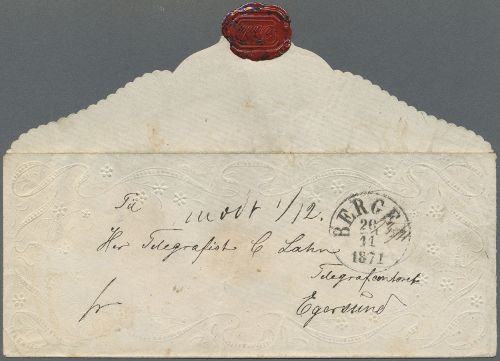 Til
modt 1/12.
BERGEN
26
11
1871
Herr Telegrafist C Lahn
Telegrafcontoret
fr
Egersund